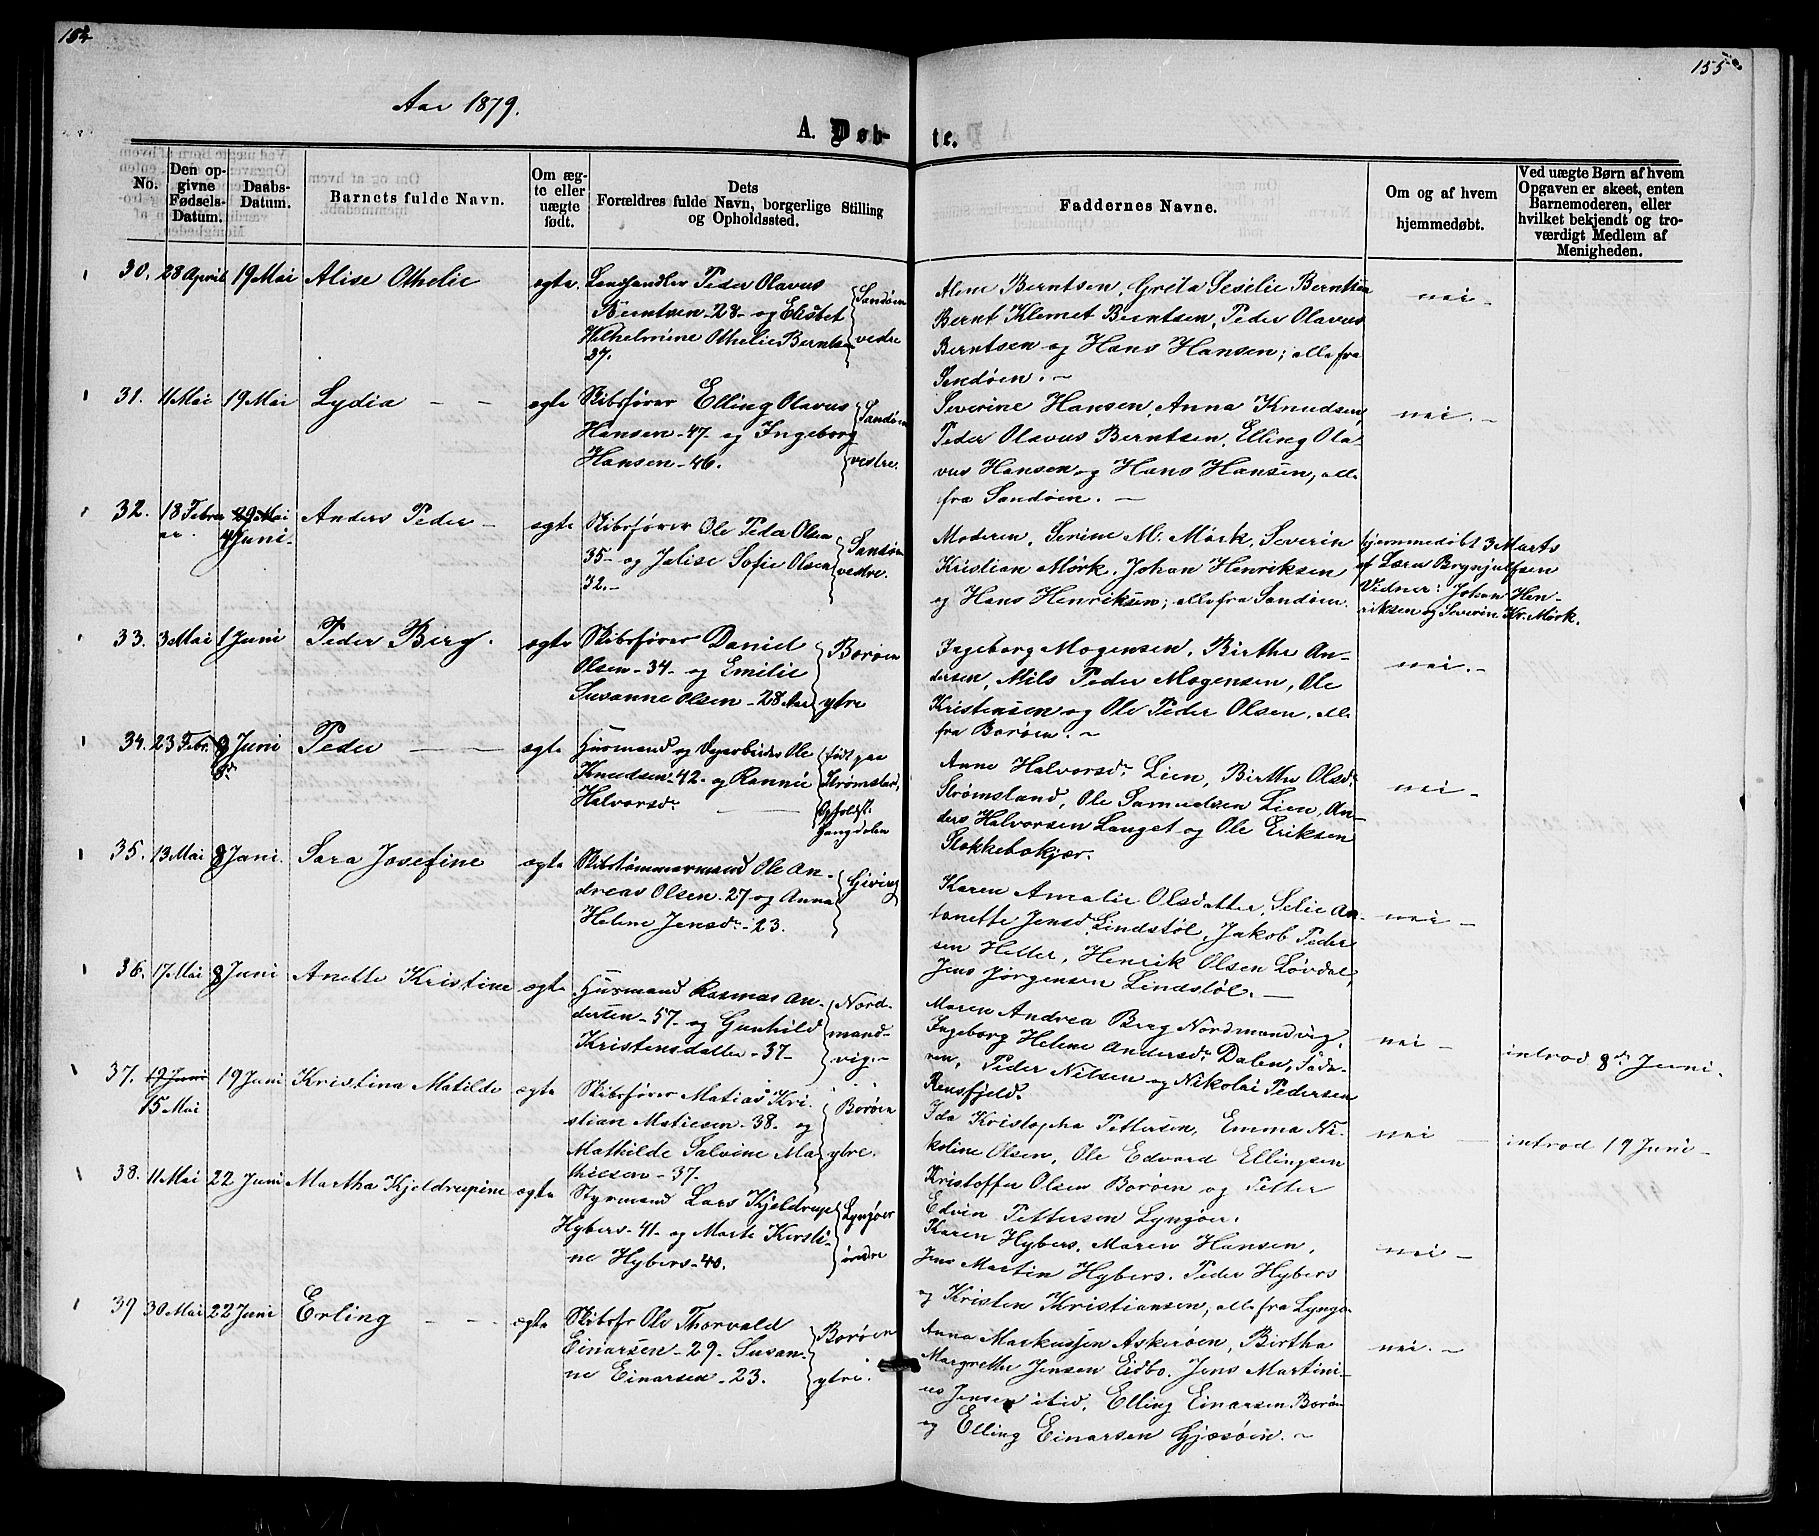 154
155
Aar 1879.
A. Døb-
te.
No.
Den op-
givne
Fødsels-
Datum.
Daabs-
Datum.
Barnets fulde Navn.
Om æg-
te eller
uægte
født.
Dets
Forældres fulde Navn, borgerlige Stilling
og Opholdssted.
Faddernes Navne.
Om og af hvem
hjemmedøbt.
Ved uægte Børn af hvem
Opgaven er skeet, enten
Barnemoderen, eller
hvilket bekjendt og tro-
værdigt Medlem af
Menigheden.
30. 28 April 19 Mai Alise Othelie ægte. Landhandler Peder Olavus
Berntsen - 28 - og Elisbet
Wilhelmine Othelie Berntsen
27.
Sandøen
vestre
Alene Berntsen, Greta Sesilie Berntsen
Bernt Klemet Berntsen, Peder Olavus
Berntsen og Hans Hansen; alle fra
Sandøen. -
nei -
31. 11 Mai 19 Mai Lydia - - ægte Skibsfører Elling Olavus
Hansen - 47 - og Ingeborg
Hansen - 46.
Sandøen
vestre.
Severine Hansen, Anna Knudsen,
Peder Olavus Berntsen, Elling Ola-
vus Hansen og Hans Hansen, alle
fra Sandøen. -
nei. -
32. 18 Febru
ar. 29 Mai
4 Juni. Anders Peder - ægte Skibsfører Ole Peder Olsen
35 - og Jalise Sofie Olsen
32. -
Sandøen
vestre.
Moderen, Serine M. Mørk, Severin
Kristian Mørk, Johan Henriksen
og Hans Henriksen; alle fra Sandøen.
hjemmedøbt 3 Marts
af Lærer Brynjulfsen
Vidner: Johan Hen-
riksen og Severin Kr. Mørk.
33. 3 Mai 1 Juni Peder Berg. ægte Skibsfører Daniel
Olsen - 34 - og Emilie
Susanne Olsen - 28 Aar
Borøen
ytre
Ingeborg Mogensen, Birthe An-
dersen, Nils Peder Mogensen, Ole
Kristensen og Ole Peder Olsen, alle
fra Borøen. -
nei. -
34. 23 Febr. 8 Juni Peder - - ægte Husmand og Dagarbeider Ole
Knudsen - 42 - og Rannei
Halvorsdr -
født paa
Strømsland,
Opholdst.
Gangdalen
Anne Halvorsdr Lien, Birthe Olsdr
Strømsland, Ole Samuelsen Lien, An-
ders Halvorsen Langet og Ole Eriksen
Stokkebokjær.
nei -
35. 13 Mai 8 Juni. Sara Josefine ægte Skibstømmermand Ole An-
dreas Olsen - 27 og Anna
Helene Jensdr - 23.
Giving
Karen Amalie Olsdatter, Selie An-
tonette Jensd. Lindstøl, Jakob Peder
sen Heller, Henrik Olsen Løvdal,
Jens Jørgensen Lindstøl. -
nei -
36. 17 Mai 8 Juni Anette Kristine ægte Husmand Rasmus An-
dersen - 57 - og Gunhild
Kristensdatter - 37 -
Nord-
mand-
vig. -
Maren Andrea Berg Nordmandvig,
Ingeborg Helene Andersdr Dalen,
Peder Nilsen og Nikolai Pedersen
Rensfjeld.
nei -
introd 8de Juni.
37. 19 Juni
15 Mai 19 Juni Kristina Matilde ægte Skibsfører Matias Kri-
stian Matiesen - 38. og
Mathilde Salvine Ma-
thiesen - 37.
Borøen
ytre.
Ida Kristopha Pettersen, Emma Ni-
koline Olsen, Ole Edvard Ellingsen
Kristoffer Olsen Borøen og Petter
Edvin Pettersen Lyngøer.
nei -
introd 19 Juni -
38. 11 Mai 22 Juni Martha Kjeldrupine ægte Styrmand Lars Kjeldrup
Hybers - 41 - og Marte Kirsti-
ne Hybers - 40.
Lyngøer
indre
Karen Hybers, Maren Hansen,
Jens Martin Hybers. Peder Hybers
og Kristen Kristiansen, alle fra Lyngø
nei -
39 30 Mai 22 Juni Erling - - ægte Skibsfr Ole Thorvald
Einarsen - 29. Susan-
ne Einarsen - 23.
Borøen
ytre.
Anna Markussen Askerøen, Birtha
Margrethe Jensen Eidbo. Jens Martini-
us Jensen ibid, Elling Einarsen Borøen
og Elling Einarsen Gjæsøen. -
nei. -